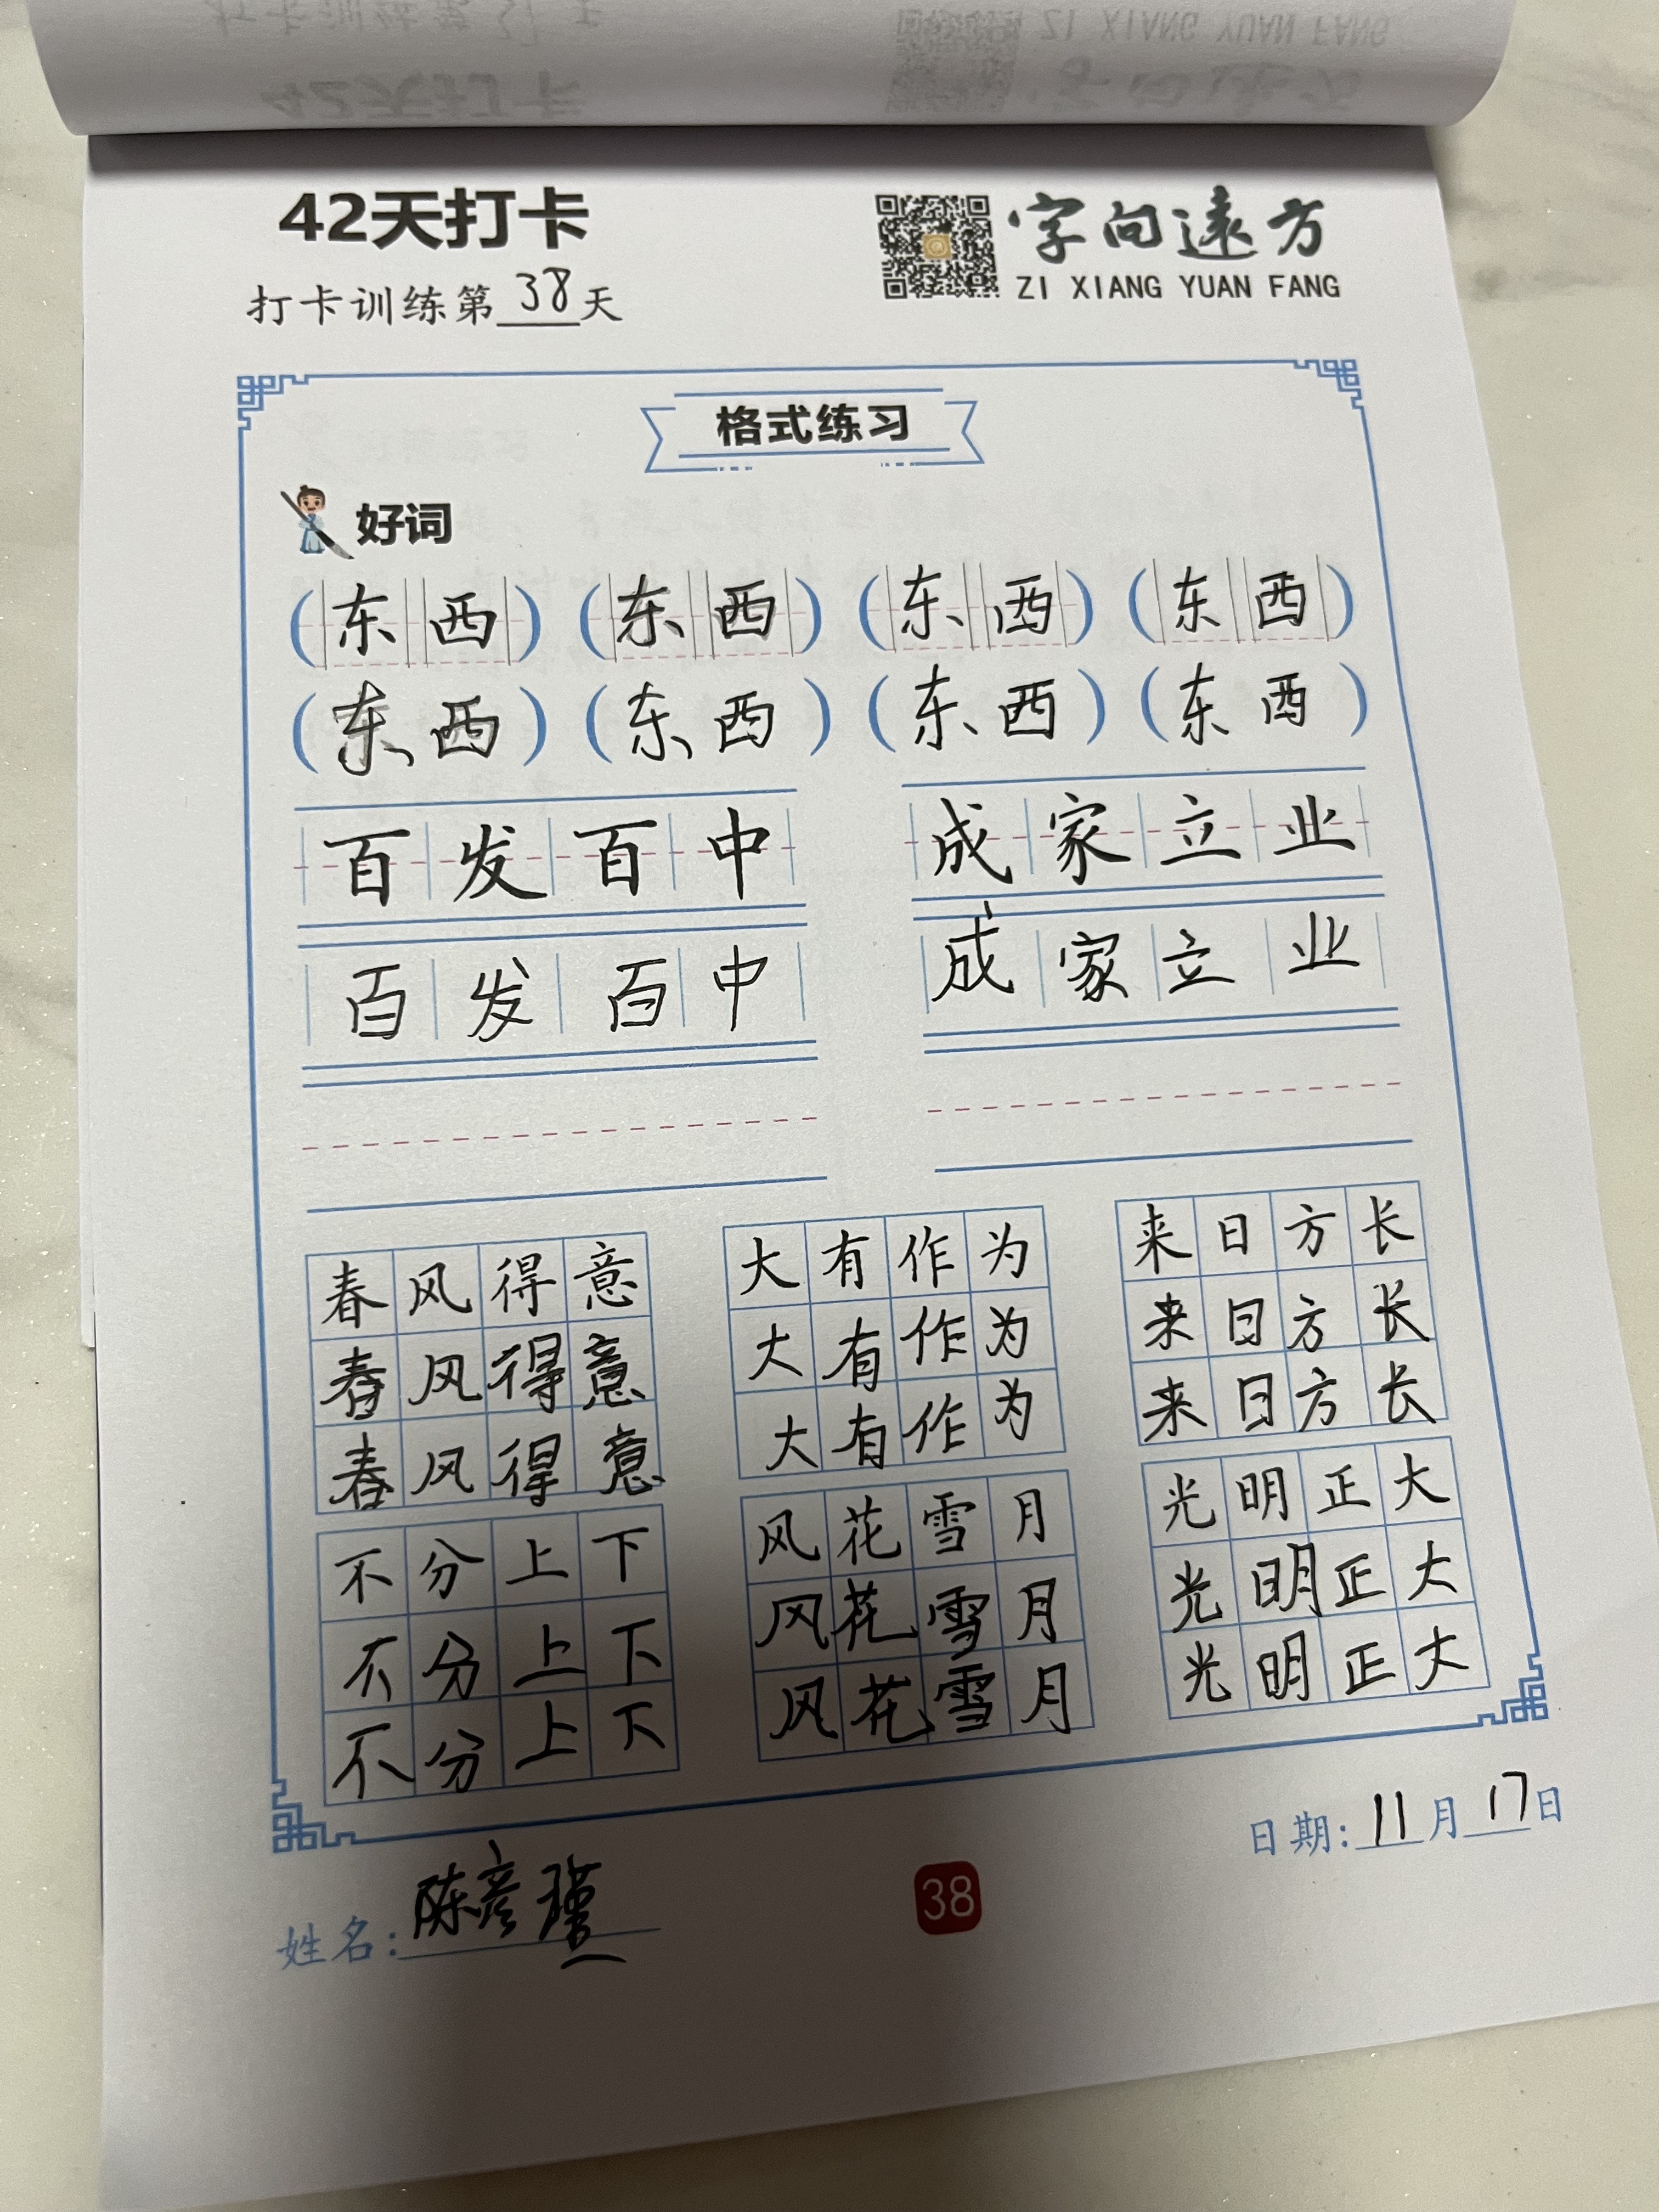 42天打卡
字向远方
ZI XIANG YUAN FANG
打卡训练第38天
格式练习
好词
(东西) (东西) (东西) (东西)
(东西) (东西) (东西) (东西)
百发百中 成家立业
百发百中 成家立业
春风得意 大有作为 来日方长
春风得意 大有作为 来日方长
春风得意 大有作为 来日方长
不分上下 风花雪月 光明正大
不分上下 风花雪月 光明正大
不分上下 风花雪月 光明正大
日期:11月17日
姓名:陈彦瑾
38